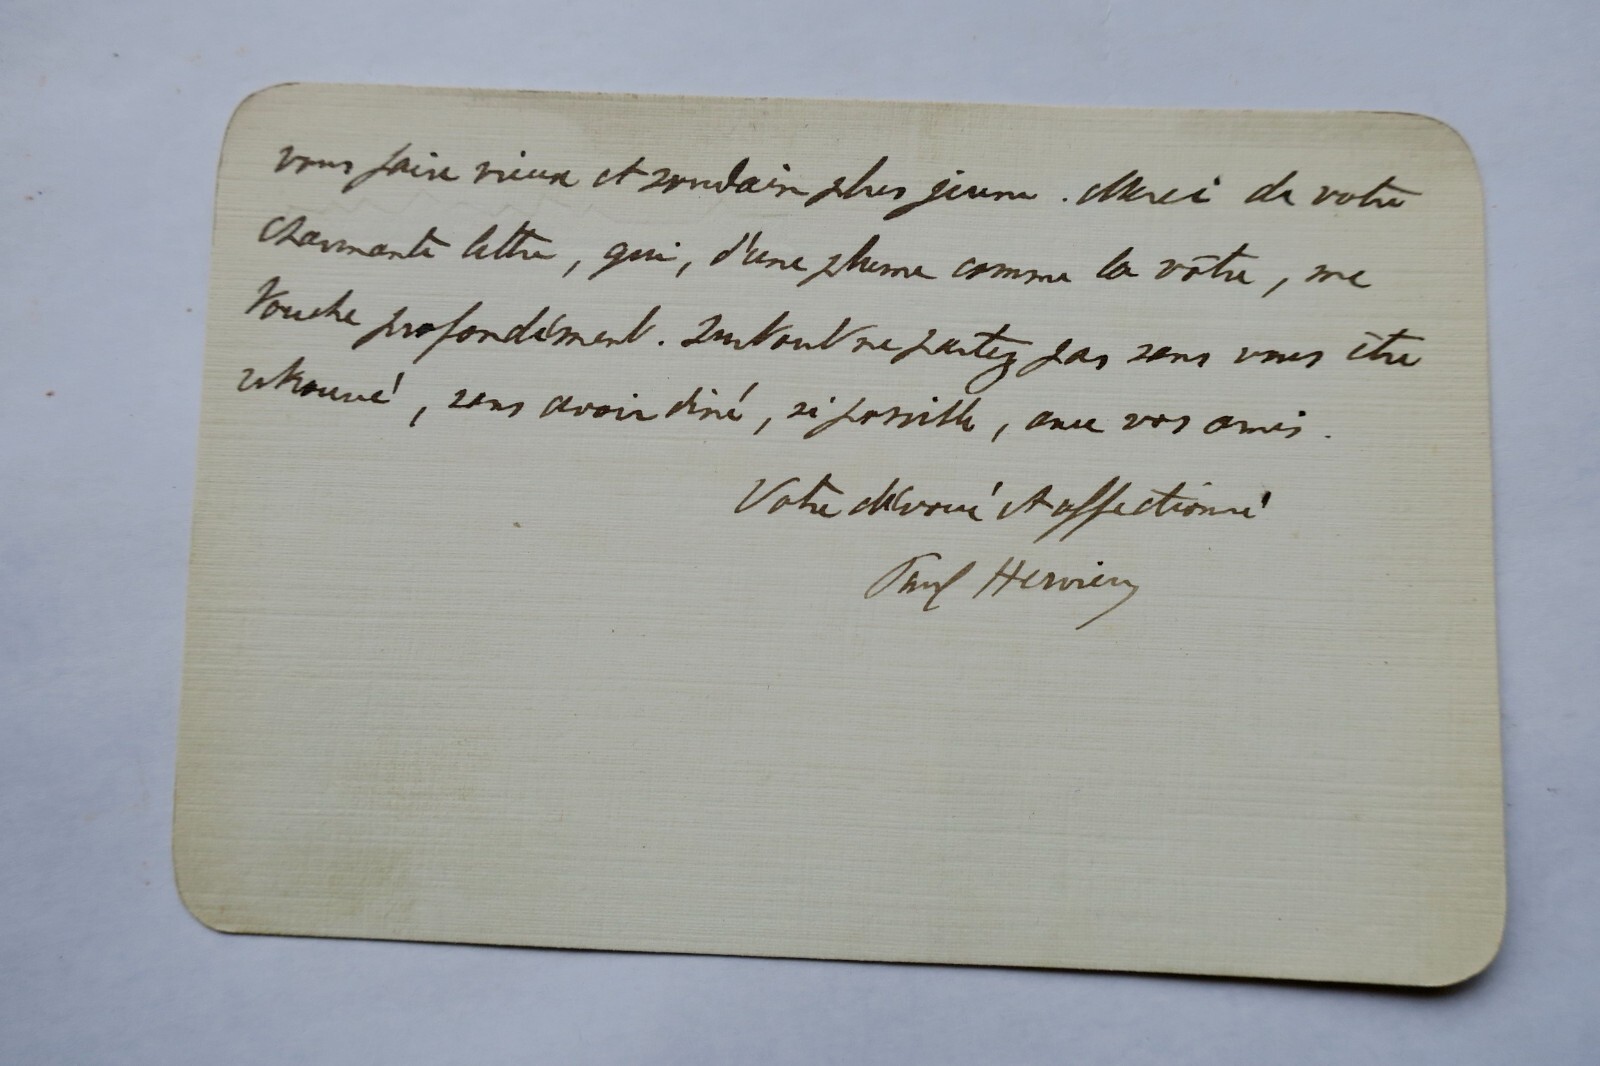 vous faire vieux et soudain plus jeune. Merci de votre
charmante lettre, qui, d'une plume comme la vôtre, me
touche profondément. Surtout ne partez pas sans vous être
retrouvé, sans avoir diné, si possible, avec vos amis.
Votre dévoué et affectionné
Paul Hervieu